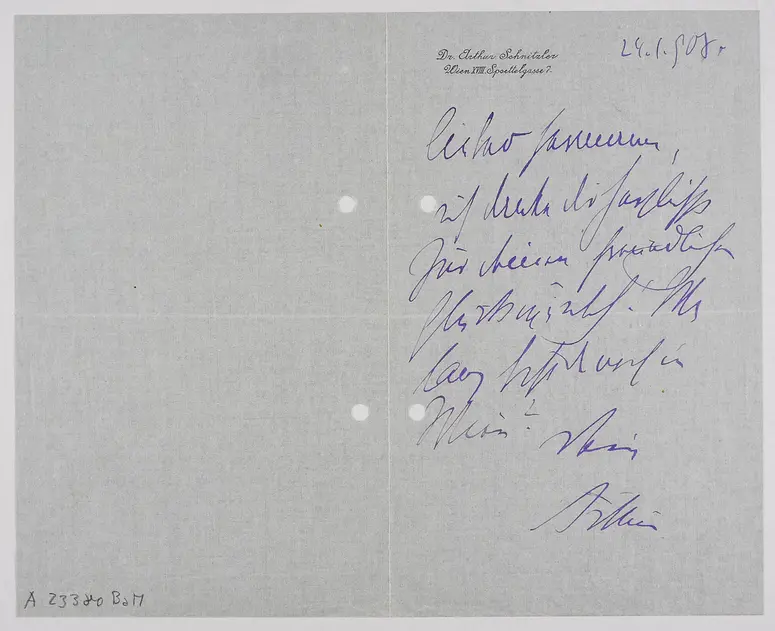 Dr. Arthur Schnitzler
Wien XVIII. Spoettelgasse 7.
24.1.908.
lieber Hermann,
ich danke dir herzlichst
für deinen freundlichen
Glückwunsch. Wie
lang bist du noch in
Wien?
Dein
Arthur
A 23380 BaM